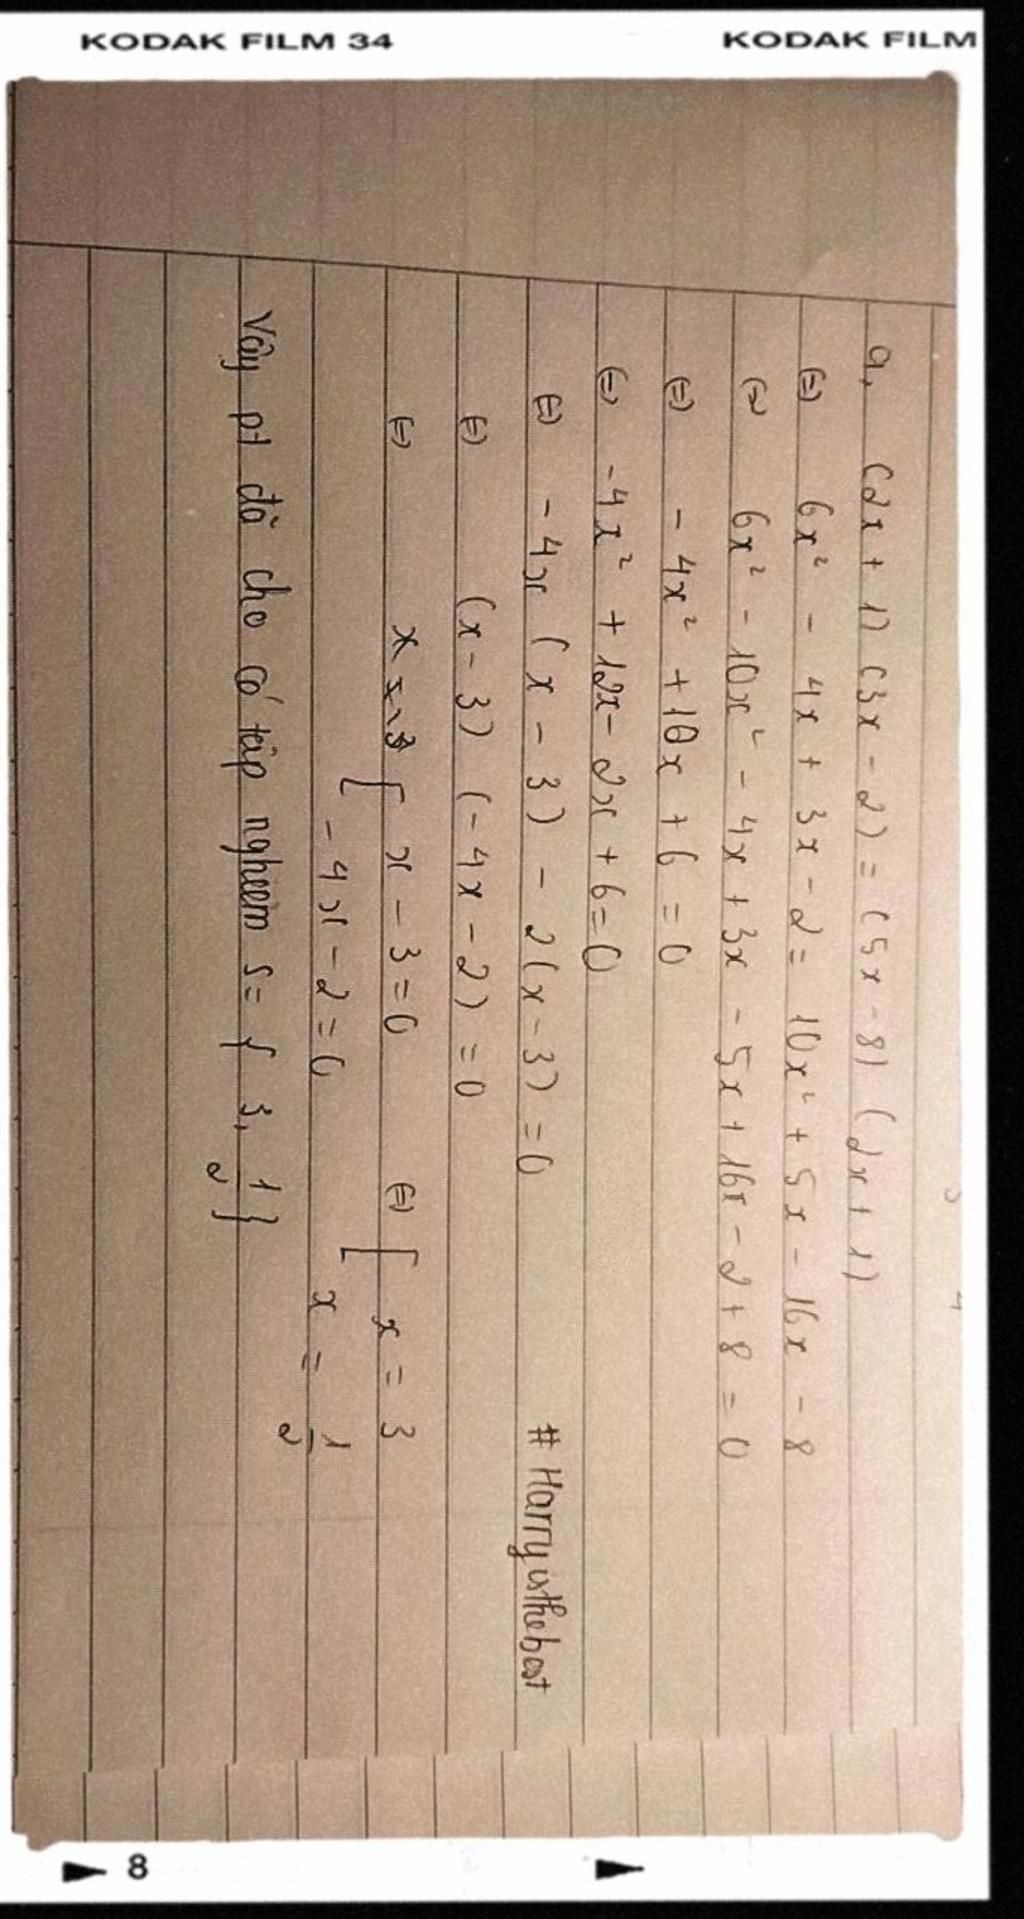 KODAK FILM 34
KODAK FILM
a, (2x + 1) (3x - 2) = (5x - 8) (2x + 1)
(=) 6x² - 4x + 3x - 2 = 10x² + 5x - 16x - 8
(=) 6x² - 10x² - 4x + 3x - 5x + 16x - 2 + 8 = 0
(=) - 4x² + 10x + 6 = 0
(=) -4x² + 12x - 2x + 6 = 0
(=) - 4x (x - 3) - 2 (x - 3) = 0
# Harryisthebest
(=) (x - 3) (- 4x - 2) = 0
(=) x [ x - 3 = 0 (=) [ x = 3
- 4x - 2 = 0 x = 1/2
Vậy pt đã cho có tập nghiệm S = { 3, 1/2 }
8